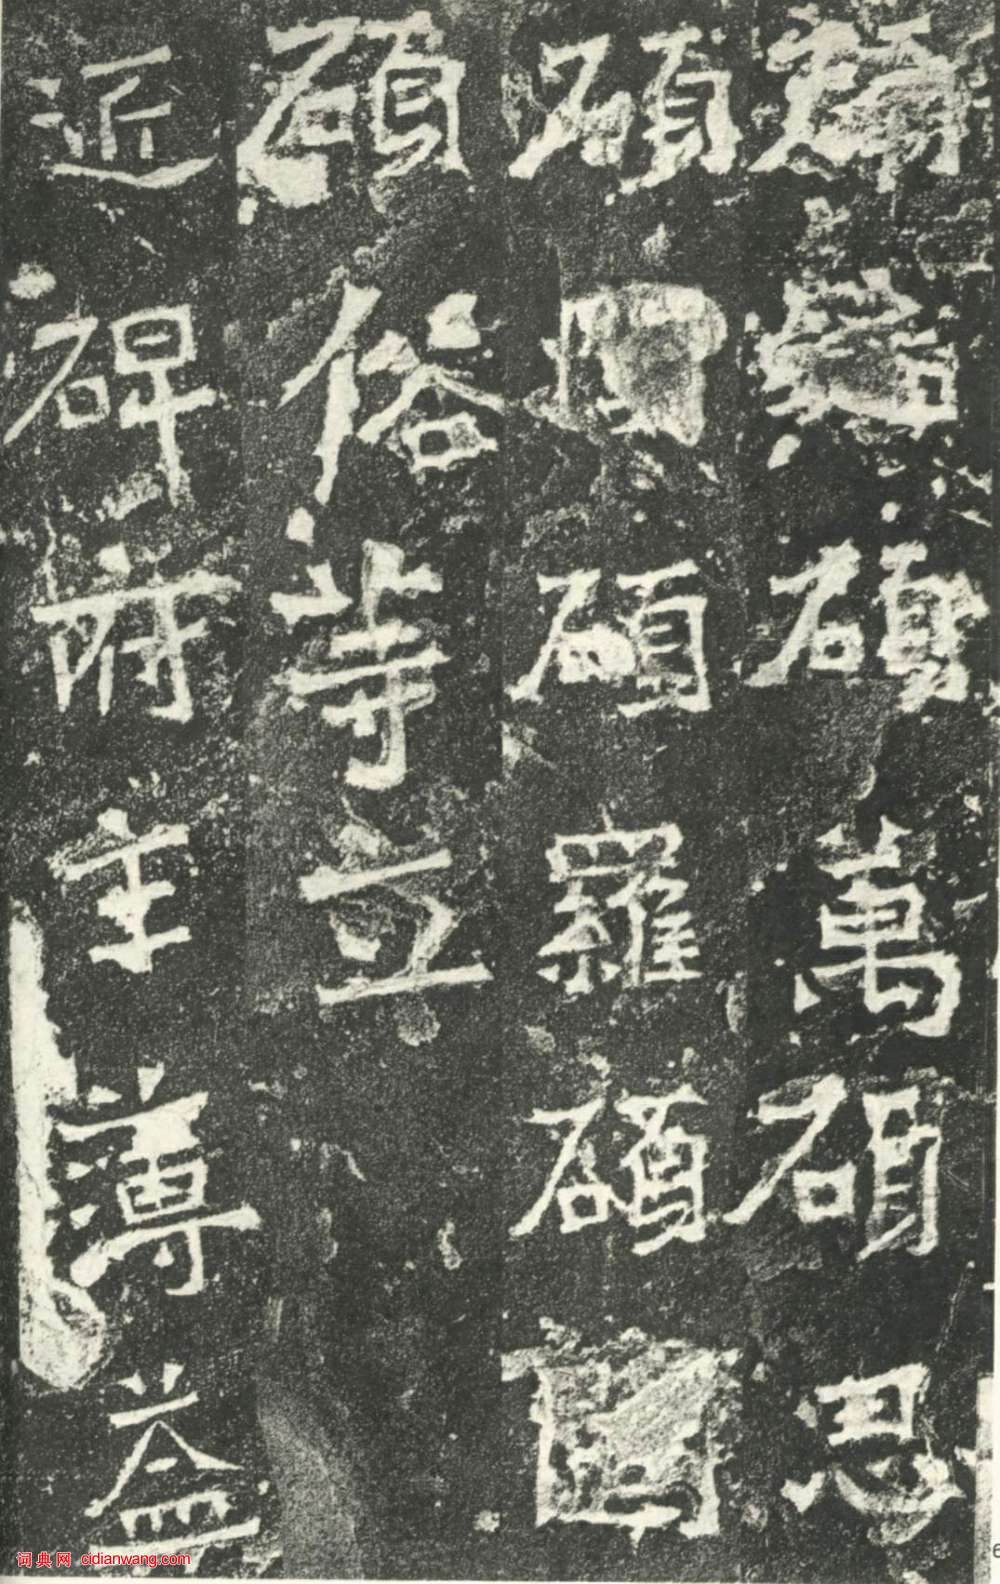 碩萬碩思
碩碩羅碩
碩俗等立
近碑府主薄益
词典网 cidianwang.com
6